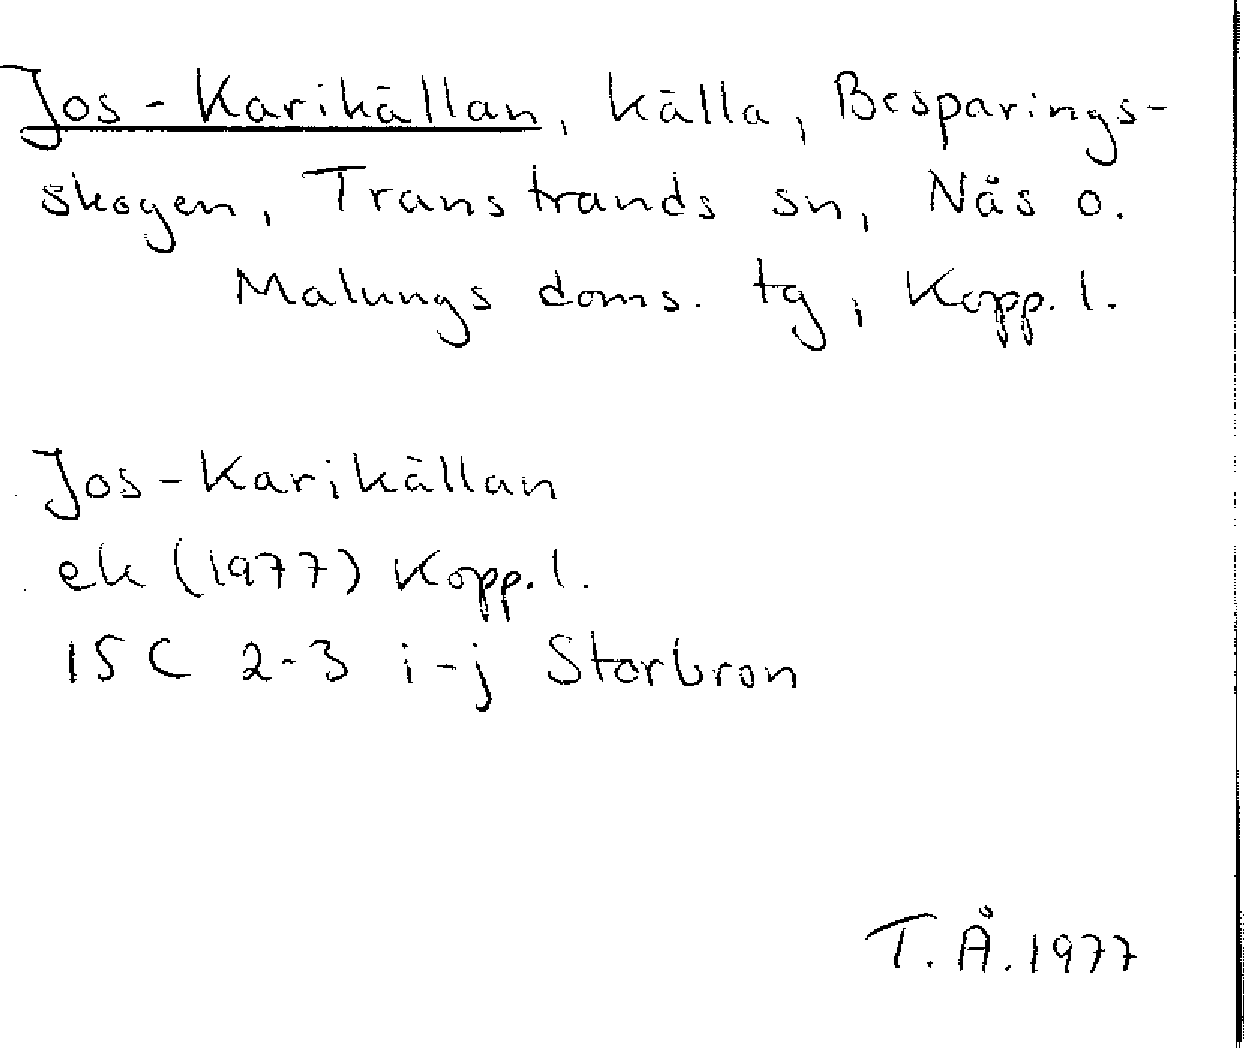 Jos-Karikällan, källa, Besparings-
skogen, Transtrands sn, Nås o.
Malungs doms. tg, Kopp. l.
Jos-Karikällan
ek (1977) Kopp. l.
15C 2-3 i-j Storbron
T. Å. 1977